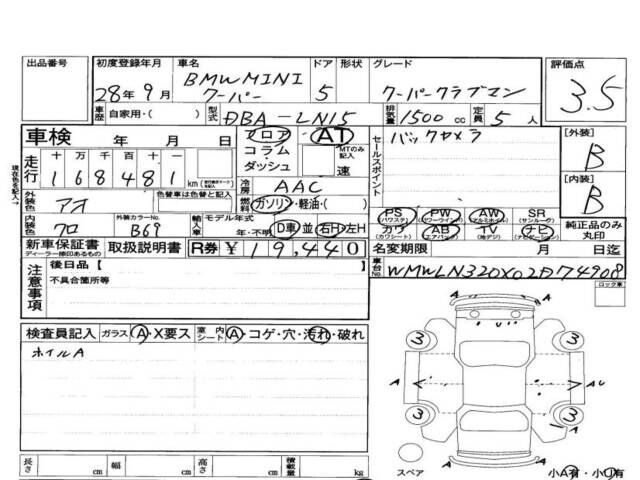 出品番号
初度登録年月 車名 ドア 形状 グレード 評価点
28年9月 BMWMINI クーパー 5 クーパークラブマン 3.5
車歴 自家用・( ) 型式 DBA-LN15 排気量 1500 cc 定員 5 人
車検 年 月 日
フロア AT
コラム・ダッシュ MTのみ記入 速
セールスポイント バックカメラ
[外装] B
[内装] B
走行 十 万 千 百 十 一
1 6 8 4 8 1 km
現在色を記入→
冷房 AAC
外装色 アオ 色替車は色替と記入
燃料 ガソリン・軽油・( )
PS (パワステ) PW (パワーウインドウ) AW (アルミホイル) SR (サンルーヴ)
カワ (カワシート) AB (エアバッグ) TV (地デジ) ナビ (ナビゲーション)
純正品のみ丸印
内装色 クロ 外装カラーNo. B69 輸入車 モデル年式 年・不明 D車 並 右H・左H
新車保証書 ディーラー捺印あるもの 取扱説明書 R券 ¥19,440
名変期限 月 日迄
車台No. WMWLN320X02D74908
ロック車
注意事項 後日品【 】
不具合箇所等
検査員記入 ガラス A・X要ス 室内シート A・コゲ・穴・汚れ・破れ
ホイルA
3 3
A A AU
3 3
A
長さ cm 幅 cm 高さ cm 積載量 kg
スペア
小A有・小U有